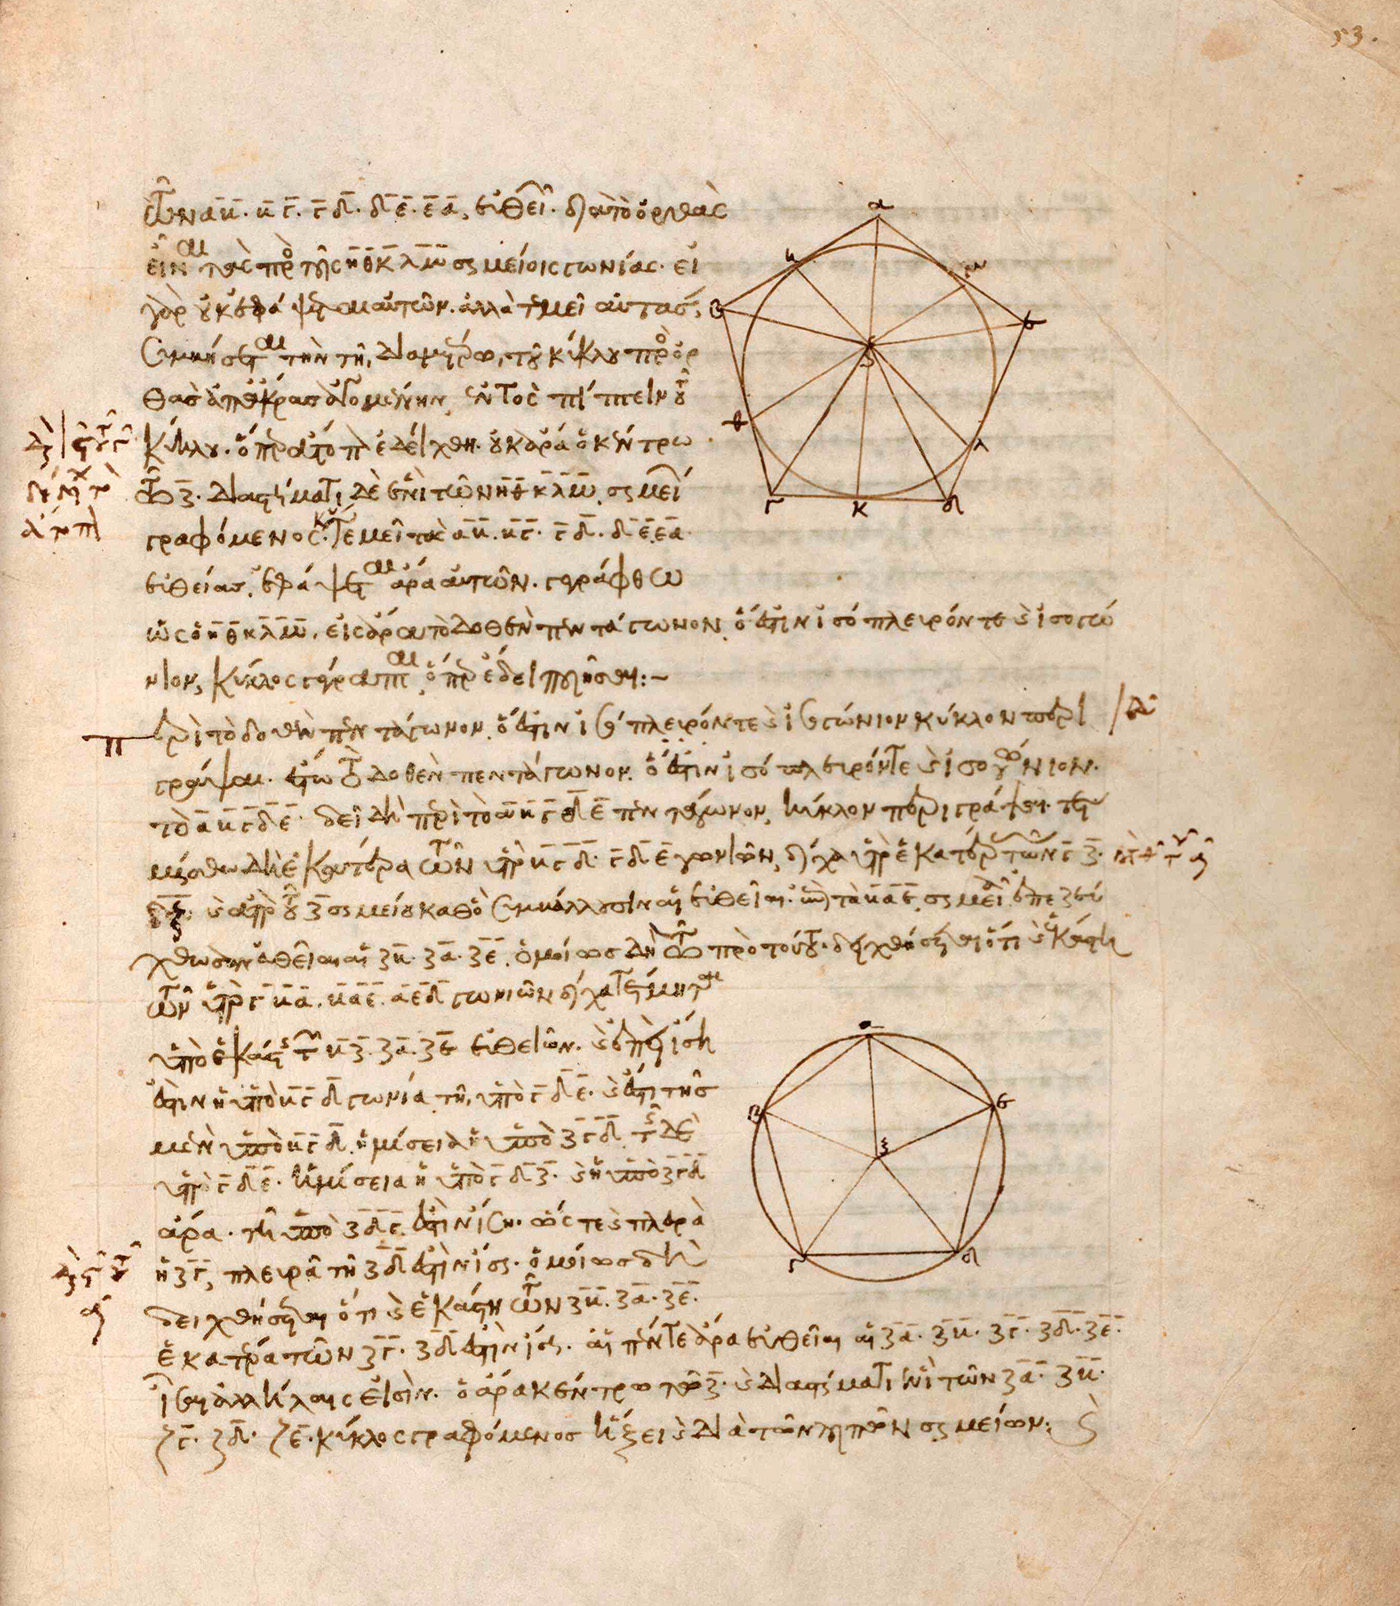 53.
τῶν α̅β̅. β̅γ̅. γ̅δ̅. δ̅ε̅. ε̅α̅, εὐθειῶν. διὰ τὸ ὀρθὰς
εἶναι τὰς πρὸς τοῖς η̅θ̅κ̅λ̅μ̅ σημείοις γωνίας. εἰ
γὰρ οὐκ ἐφάψεται αὐτῶν. ἀλλὰ τεμεῖ αὐτάς,
συμβήσεται τὴν τῇ, διαμέτρῳ, τοῦ κύκλου πρὸς ὀρ
θὰς ἀπ' ἄκρας ἀγομένην, ἐντὸς πίπτειν τοῦ
κύκλου. ὅπερ ἄτοπον ἐδείχθη. οὐκ ἄρα ὁ κέντρῳ
τῷ ζ̅. διαστήματι δὲ ἑνὶ τῶν η̅θ̅κ̅λ̅μ̅, σημείων
γραφόμενος κύκλος τεμεῖ τὰς α̅β̅. β̅γ̅. γ̅δ̅. δ̅ε̅. ε̅α̅
εὐθείας. ἐφάψεται ἄρα αὐτῶν. γεγράφθω
ὡς ὁ η̅θ̅κ̅λ̅μ̅. εἰς ἄρα τὸ δοθὲν πεντάγωνον, ὅ ἐστιν ἰσόπλευρόν τε καὶ ἰσογώ
νιον, κύκλος γέγραπται, ὅπερ ἔδει ποιῆσαι:-
Περὶ τὸ δοθὲν πεντάγωνον. ὅ ἐστιν ἰσόπλευρόν τε καὶ ἰσογώνιον κύκλον περι
γράψαι. ἔστω τὸ δοθὲν πεντάγωνον. ὅ ἐστιν ἰσόπλευρόν τε καὶ ἰσογώνιον.
τὸ α̅β̅γ̅δ̅ε̅. δεῖ δὴ περὶ τὸ α̅β̅γ̅δ̅ε̅ πεντάγωνον, κύκλον περιγράψαι. τετ
μήσθω δὴ ἑκατέρα τῶν ὑπὸ β̅γ̅δ̅. γ̅δ̅ε̅ γωνιῶν, δίχα ὑπὸ ἑκατέρας τῶν γ̅ζ̅.
δ̅ζ̅. καὶ ἀπὸ τοῦ ζ̅ σημείου καθ' ὃ συμβάλλουσιν αἱ εὐθεῖαι. ἐπὶ τὰ β̅α̅ε̅, σημεῖα ἐπεζεύ
χθωσαν εὐθεῖαι αἱ ζ̅β̅. ζ̅α̅. ζ̅ε̅. ὁμοίως δὴ τῷ πρὸ τούτου. δειχθήσεται ὅτι καὶ ἑκάστη
τῶν ὑπὸ γ̅β̅α̅. β̅α̅ε̅. α̅ε̅δ̅ γωνιῶν δίχα τέτμηται
ὑπὸ ἑκάστης τῶν β̅ζ̅. ζ̅α̅. ζ̅ε̅ εὐθειῶν. καὶ ἐπεὶ ἴση
ἐστὶν ἡ ὑπὸ β̅γ̅δ̅ γωνία τῇ, ὑπὸ γ̅δ̅ε̅. καὶ ἔστι τῆς
μὲν ὑπὸ β̅γ̅δ̅. ἡμίσεια ἡ ὑπὸ ζ̅γ̅δ̅. τῆς δὲ
ὑπὸ γ̅δ̅ε̅. ἡμίσεια ἡ ὑπὸ γ̅δ̅ζ̅. καὶ ἡ ὑπὸ ζ̅γ̅δ̅
ἄρα. τῇ ὑπὸ ζ̅δ̅γ̅. ἐστὶν ἴση. ὥστε καὶ πλευρὰ
ἡ ζ̅γ̅, πλευρᾷ τῇ ζ̅δ̅ ἐστὶν ἴση. ὁμοίως δὴ
δειχθήσεται ὅτι καὶ ἑκάστη τῶν ζ̅β̅. ζ̅α̅. ζ̅ε̅.
ἑκατέρᾳ τῶν ζ̅γ̅. ζ̅δ̅ ἐστὶν ἴση. αἱ πέντε ἄρα εὐθεῖαι αἱ ζ̅α̅. ζ̅β̅. ζ̅γ̅. ζ̅δ̅. ζ̅ε̅.
ἴσαι ἀλλήλαις εἰσίν. ὁ ἄρα κέντρῳ τῷ ζ̅. καὶ διαστήματι ἑνὶ τῶν ζ̅α̅. ζ̅β̅.
ζ̅γ̅. ζ̅δ̅. ζ̅ε̅. κύκλος γραφόμενος ἥξει καὶ διὰ τῶν λοιπῶν σημείων. καὶ
α
β
ε
η
μ
θ
λ
ζ
γ
κ
δ
α
β
ε
ζ
γ
δ